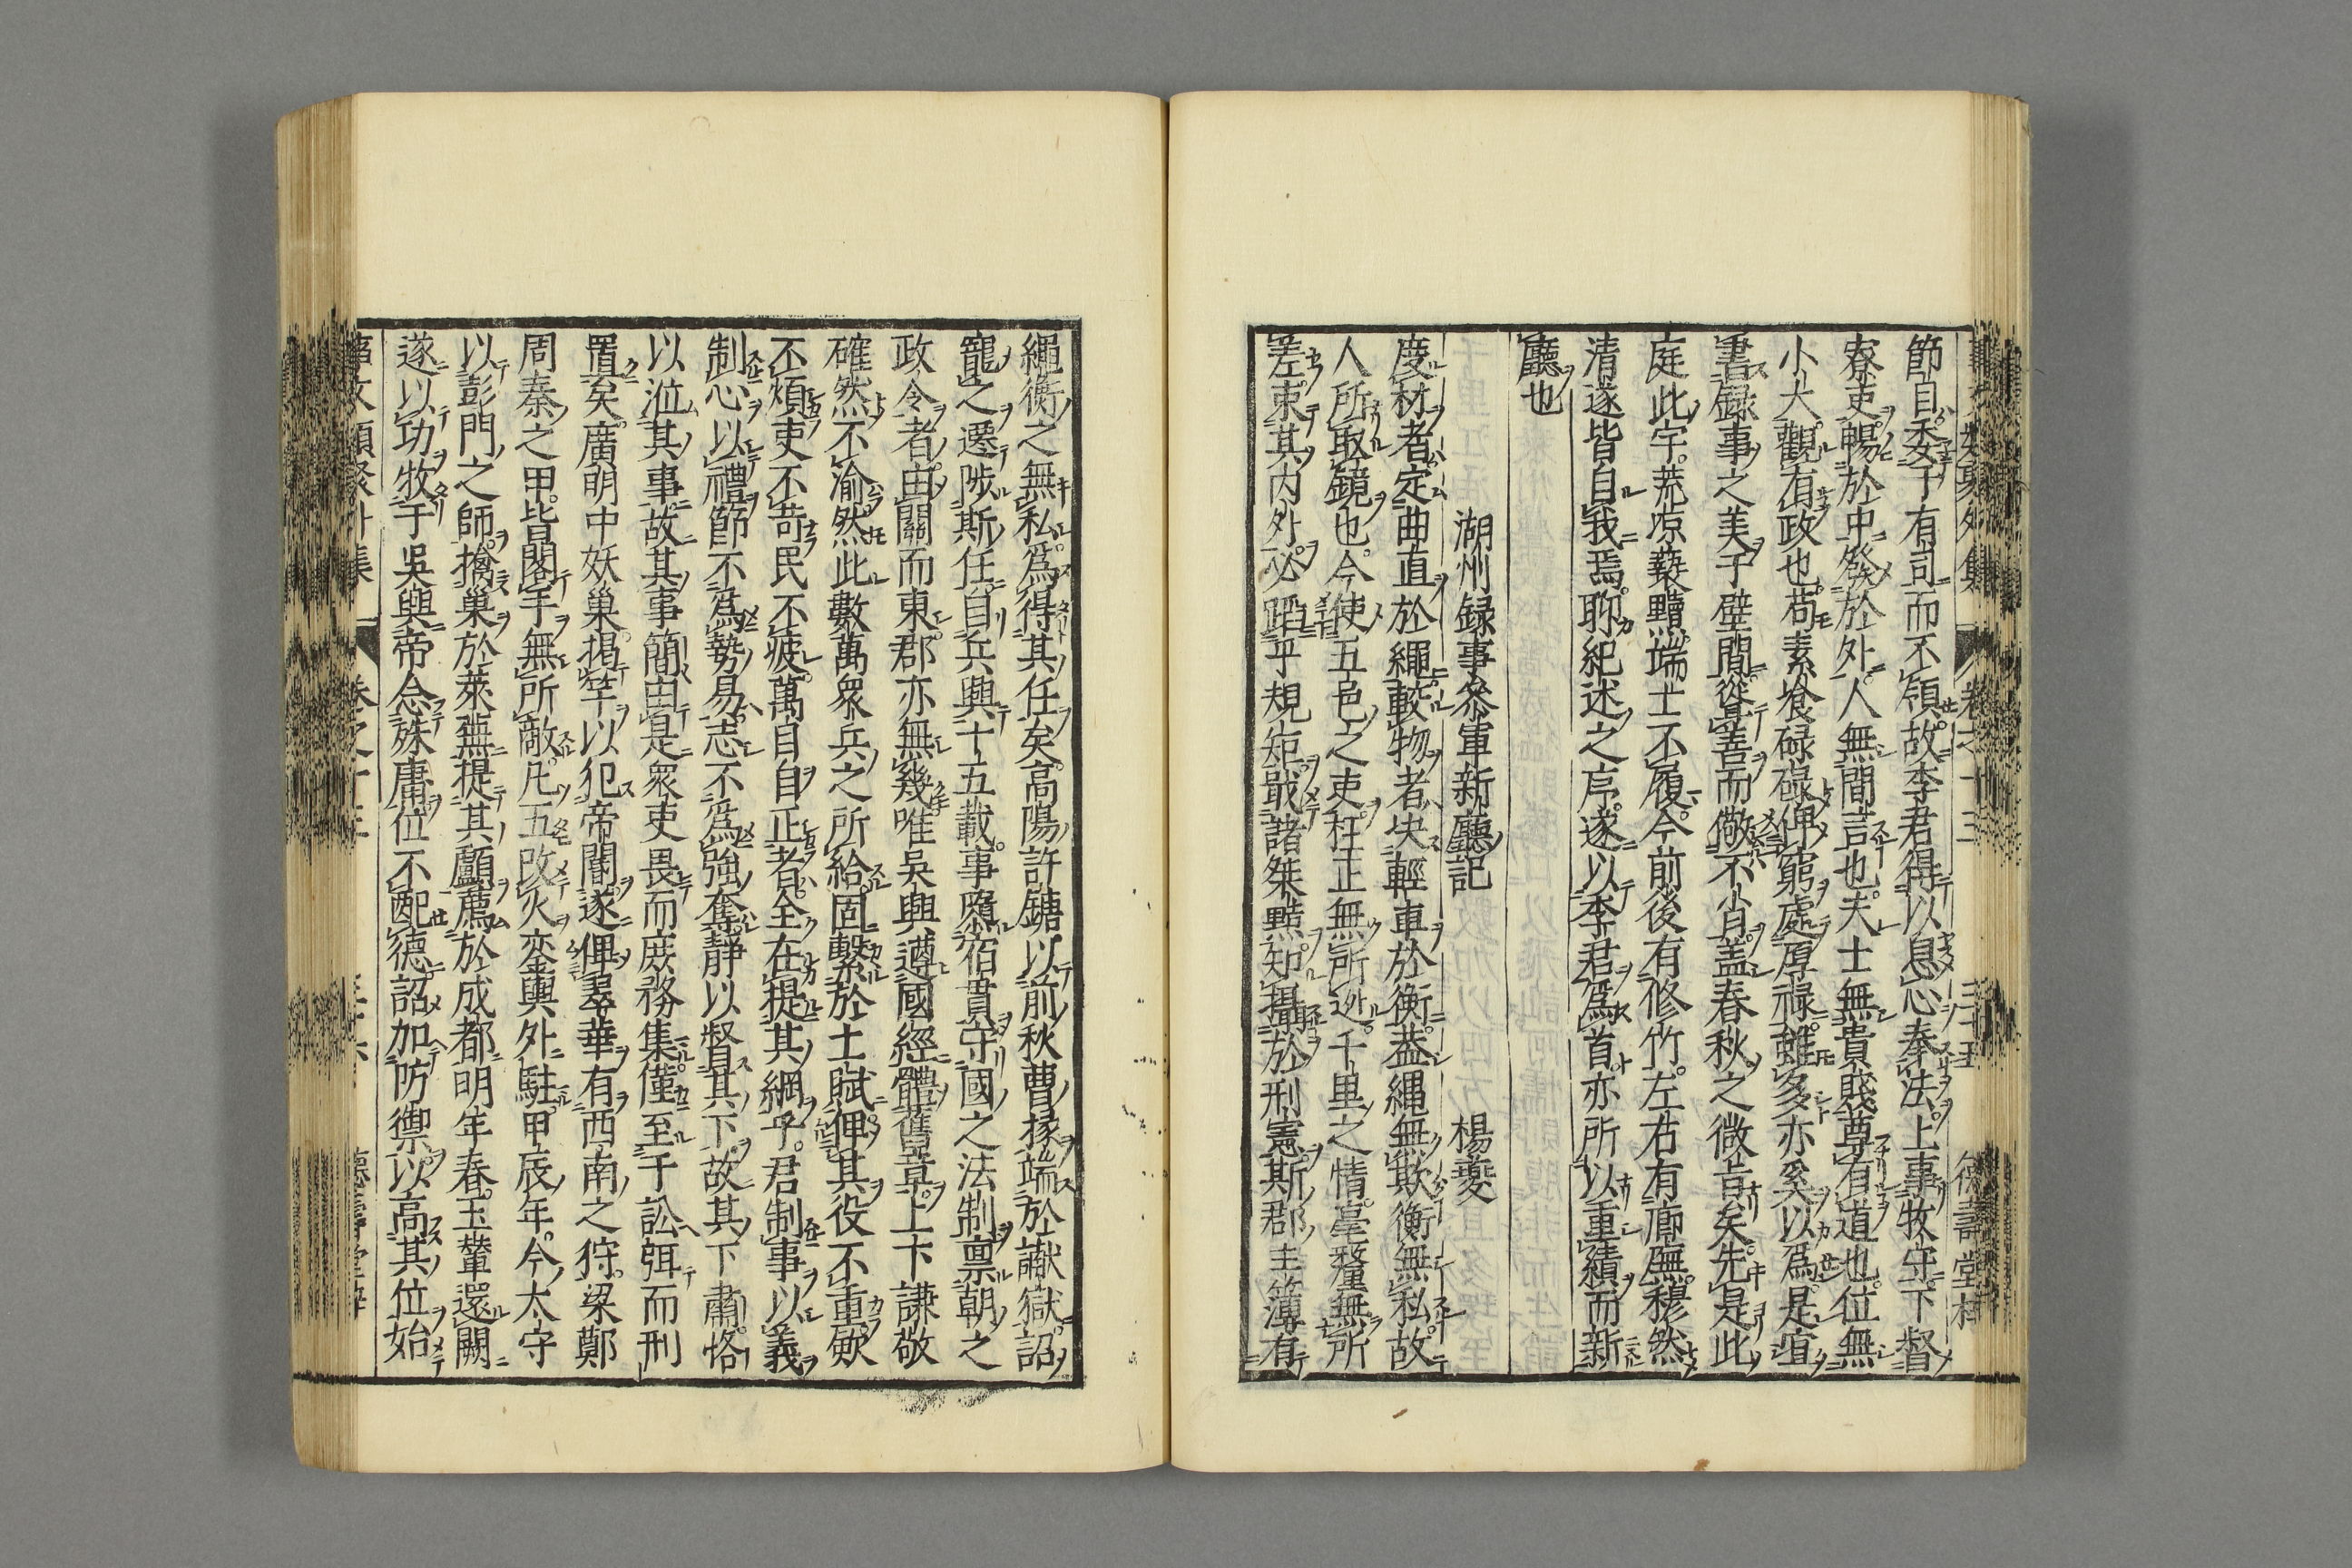 節自委于有司而不領故李君得以息心奉法上事牧守下督
寮吏暢於中發於外人無間言也夫士無貴賤尊有道也位無
小大觀有政也苟素飡碌碌俾窮處厚祿雖多亦奚以爲是宜
書錄事之美于壁間從其善而儆不肖蓋春秋之微旨矣先是此
庭此宇荒凉藝黷端士不履今前後有修竹左右有廊廡穆然
清遂皆自我焉聊紀述之序遂以李君爲首亦所以重績而新
廳也
湖州録事參軍新廳記 楊夔
度材者定曲直於繩較物者決輕車於衡蓋繩無欺衡無私故
人所取鏡也今使五色之吏枉正無所逃千里之情毫釐無所
差束其内外必蹈乎規矩戢諸桀黠知攝於刑憲斯郡主簿有
繩衡之無私爲得其任矣高陽許鏞以前秋曹掾端於讞獄詔
寵之遷陟斯任自兵興十五載事隳宿貫守國之法制禀朝之
政令者由關而東郡亦無幾唯吳興遵國經體舊章上下謙敬
確然不渝然此數萬衆兵之所給固繫於土賦俾其役不重斂
不煩吏不苛民不疲萬目自正者全在提其綱乎君制事以義
制心以禮節不爲勢易志不爲強奪靜以督其下故其下肅恪
以涖其事故其事簡由是衆吏畏而庶務集僅至于訟弭而刑
置矣廣明中妖巢揭竿以犯帝閽遂俾翠華有西南之狩梁鄭
周秦之甲皆閣手無所敵凡五改火鑾輿外駐甲辰年今太守
以彭門之師擒巢於萊蕪提其顱薦於成都明年春玉輦還闕
遂以功牧于吳與帝念殊庸位不配德詔加防禦以高其位始